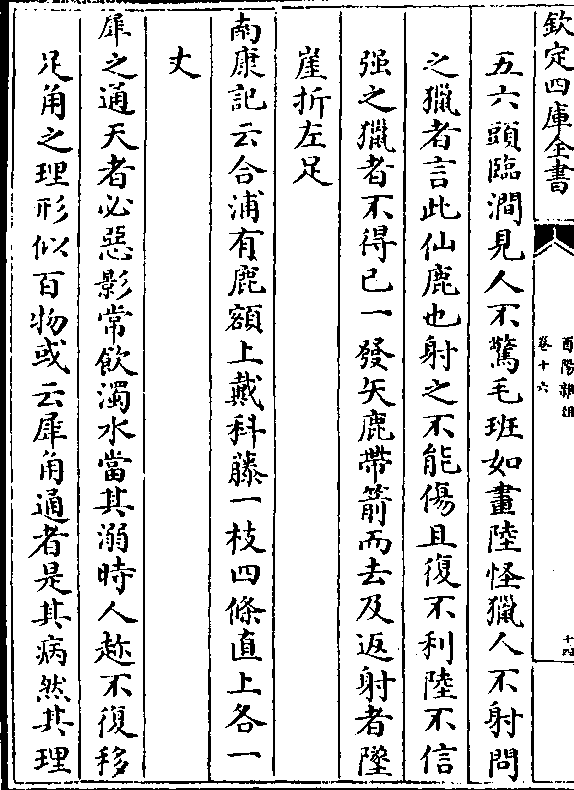 欽定四庫全書
酉陽雜俎
卷十六
十四
五六頭臨澗見人不驚毛班如畫陸怪獵人不射問
之獵者言此仙鹿也射之不能傷且復不利陸不信
强之獵者不得已一發矢鹿帶箭而去及返射者墜
崖折左足
南康記云合浦有鹿額上戴科藤一枝四條直上各一
丈
犀之通天者必惡影常飲濁水當其溺時人趂不復移
足角之理形似百物或云犀角通者是其病然其理